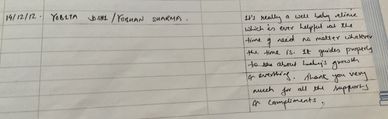 19/12/12. YOBITA /YOBHAN SHARMA.
It's really a well baby clinic
which is ever helpful at the
time of need no matter whatever
the time is. It guides properly
to the about baby's growth
& everything. Thank you very
much for all the supporting
& compliments.